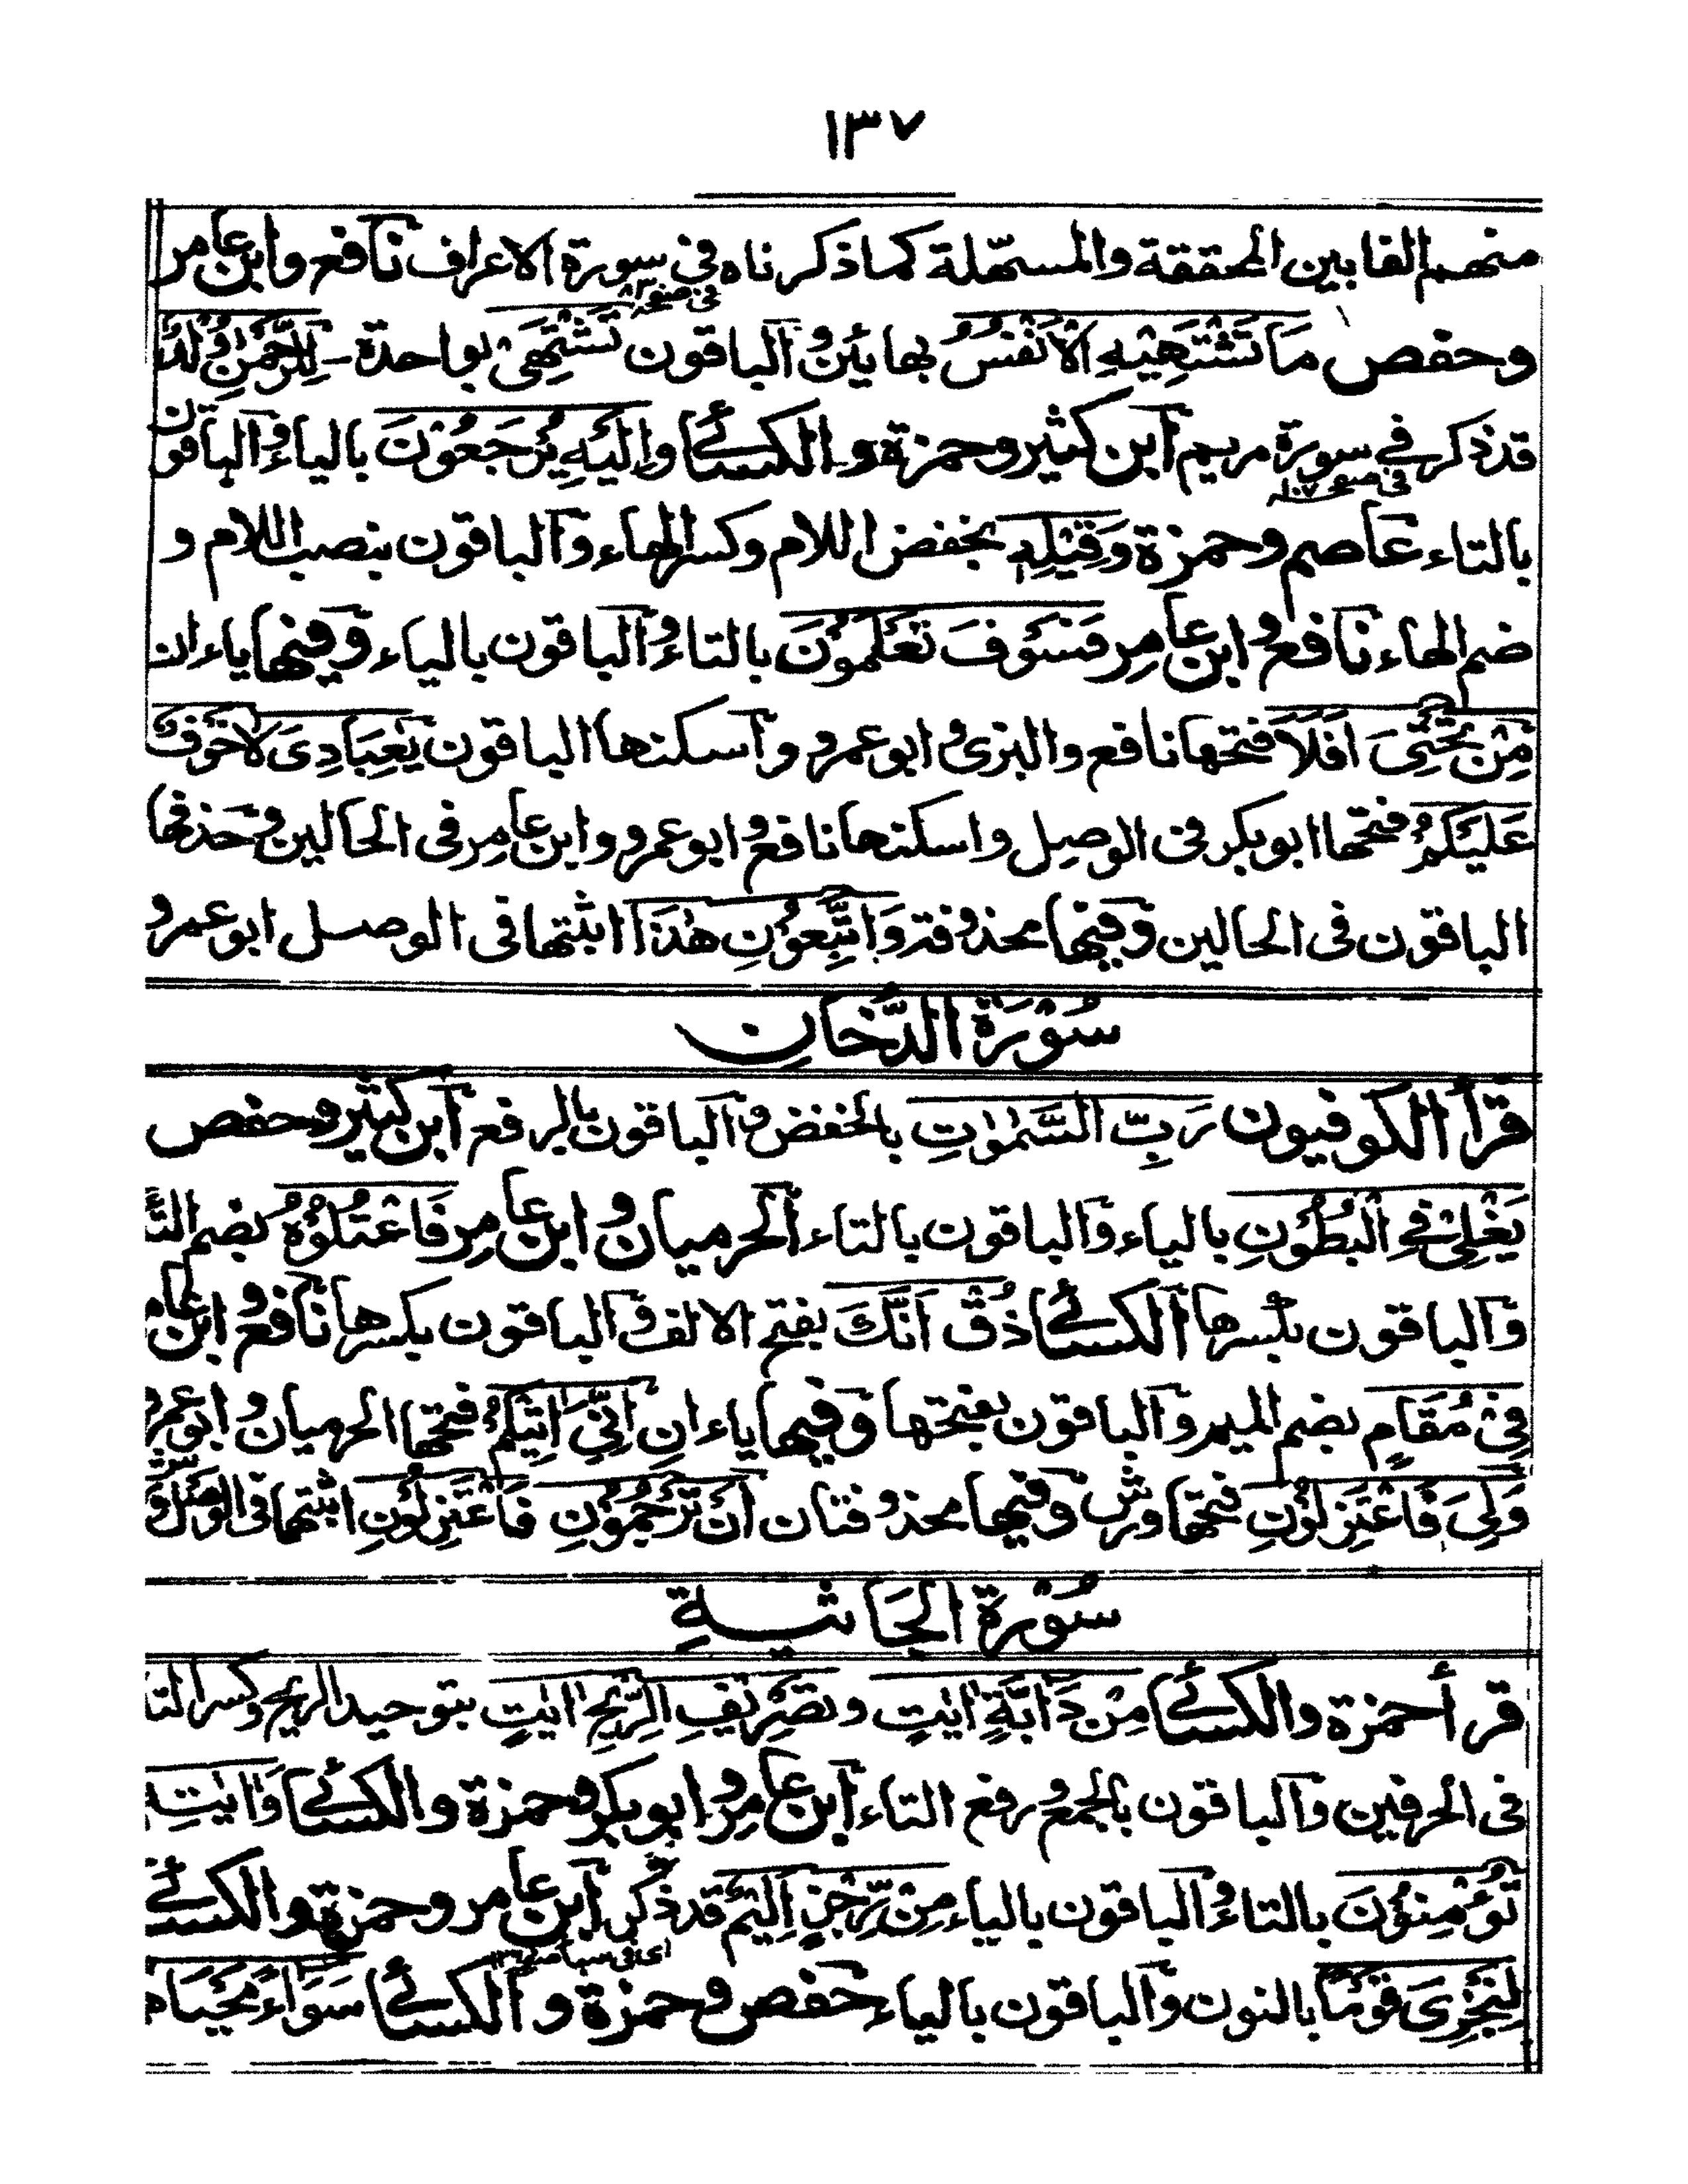 ١٣٧
منهم الفا بين المحققة والمسهّلة كما ذكرناه فى سورة الاعراف نافع وابن عامر
فى صفحہ ٨٣
وحفص مَا تَشْتَهِيْهِ الْاَنْفُسُ بهائين والباقون تَشْتَهِىْ بواحدة ـ لِلرَّحْمٰنِ وُلْدٌ
قد ذكر فے سورة مريم ابن كثير وحمزة والكسائے وَاِلَيْهِ يُرْجَعُوْنَ بالياء والباقون
فى صفحہ ١٠٧
بالتاء عاصم وحمزة وَقِيْلِهٖ بخفض اللام وكسر الهاء والباقون بنصب اللام و
ضم الهاء نافع وابن عامر فَسَوْفَ تَعْلَمُوْنَ بالتاء والباقون بالياء وفيها ياءان
مِنْ تَحْتِىَ اَفَلَا فتحها نافع والبزى وابو عمرو واسكنها الباقون يٰعِبَادِىَ لَاخَوْفٌ
عَلَيْكُمْ فتحها ابو بكر فى الوصل واسكنها نافع وابو عمرو وابن عامر فى الحالين وحذفها
الباقون فى الحالين وفيها محذوفة وَاتَّبِعُوْنِ هٰذَا اثبتها فى الوصل ابو عمرو
سُوْرَةُ الدُّخَانِ
قرأ الكوفيون رَبِّ السَّمٰوٰتِ بالخفض والباقون بالرفع ابن كثير وحفص
يَغْلِىْ فِى الْبُطُوْنِ بالياء والباقون بالتاء الحرميان وابن عامر فَاعْتُلُوْهُ بضم التاء
والباقون بكسرها الكسائے ذُقْ اَنَّكَ بفتح الالف والباقون بكسرها نافع وابن عامر
فِىْ مُقَامٍ بضم الميم والباقون بفتحها وفيها ياءان اِنِّىَ اٰتِيْكُمْ فتحها الحرميان وابو عمرو
وَلِىَ فَاعْتَزِلُوْنِ فتحها ورش وفيها محذوفتان اَنْ تَرْجُمُوْنِ فَاعْتَزِلُوْنِ اثبتها فى الوصل ورش
سُوْرَةُ الْجَاثِيَةِ
قرأ حمزة والكسائے مِنْ دَآبَّةٍ اٰيٰتٍ وتَصْرِيْفِ الرِّيْحِ اٰيٰتٍ بتوحيد الريح وكسر التاء
فى الحرفين والباقون بالجمع ورفع التاء ابن عامر وابو بكر وحمزة والكسائے وَاٰيٰتِهٖ
تُؤْمِنُوْنَ بالتاء والباقون بالياء مِنْ رِّجْزٍ اَلِيْمٍ قد ذكر ابن عامر وحمزة والكسائے
اى فى سبا
لِنَجْزِىَ قَوْمًا بالنون والباقون بالياء حفص وحمزة والكسائے سَوَآءً مَّحْيَاهُمْ